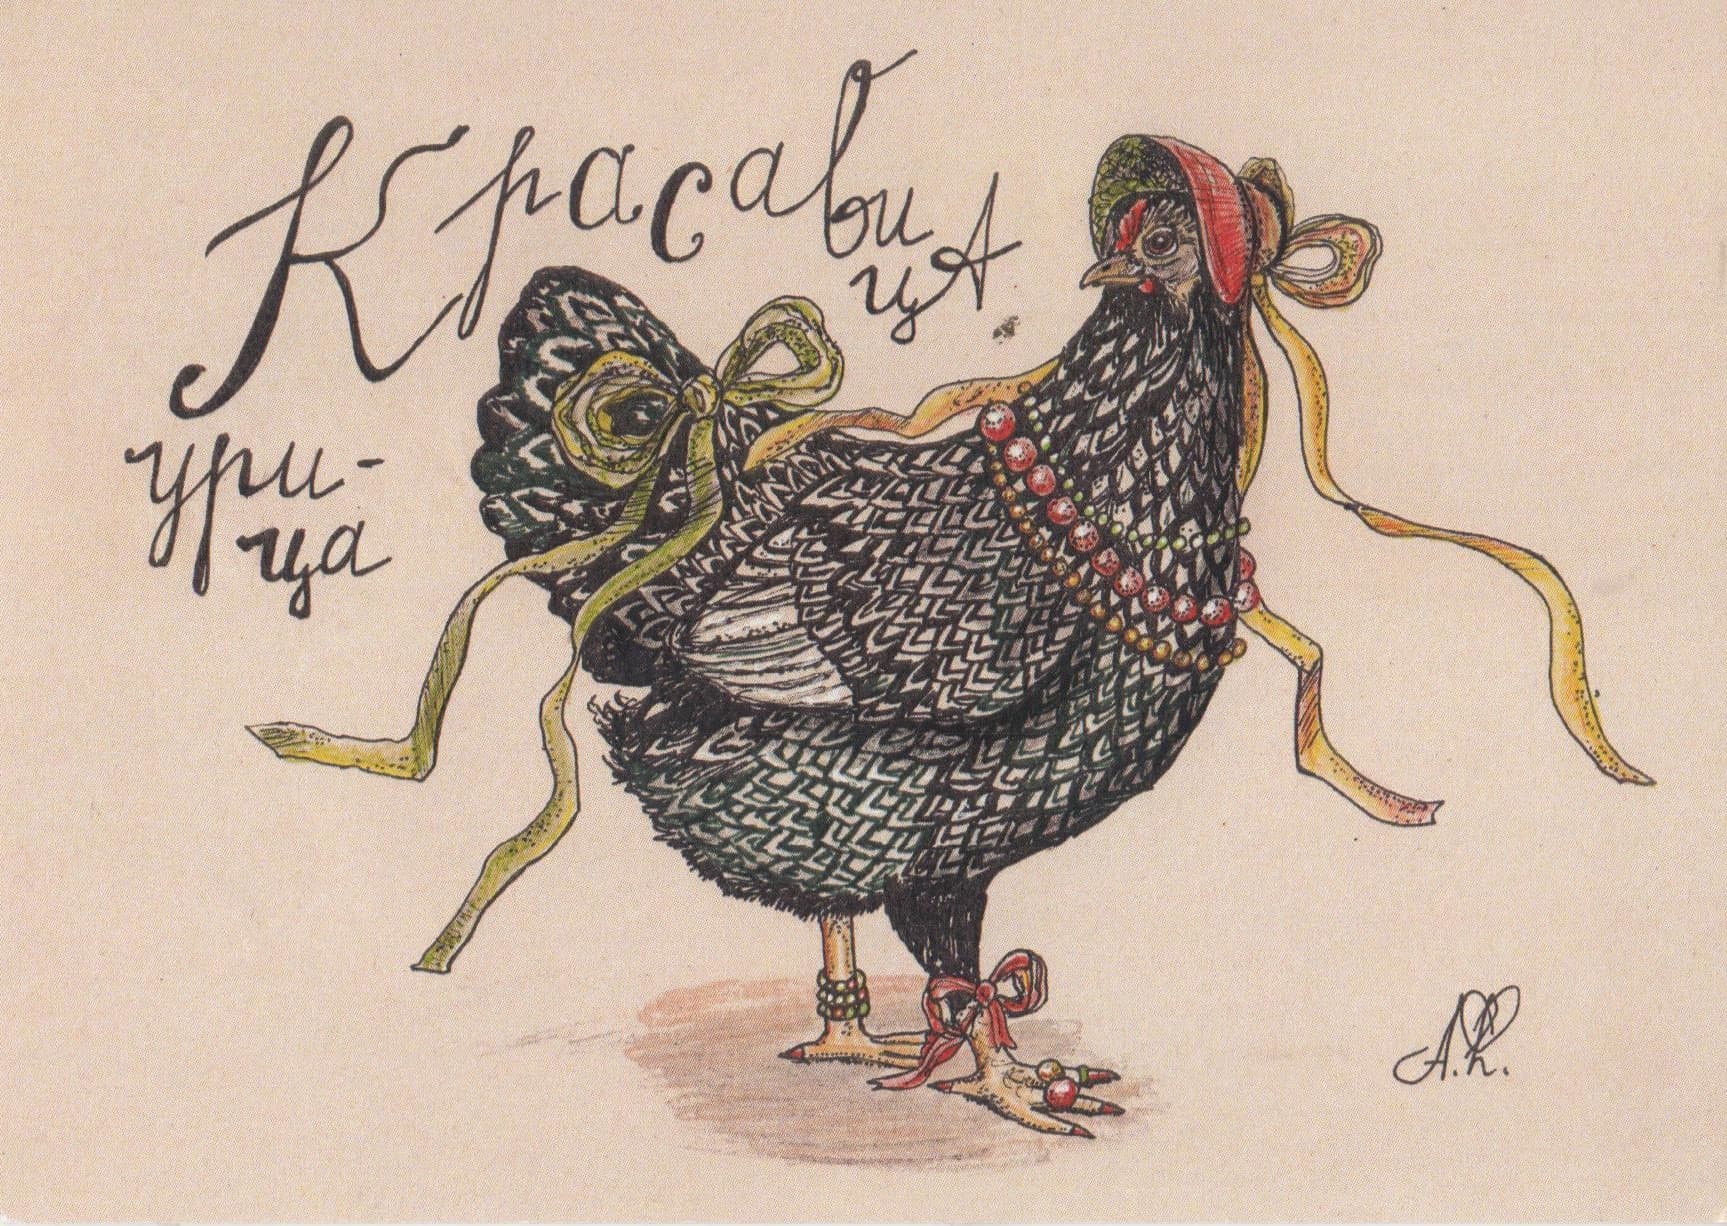 Красави
цА
ури-
ца
А.К.